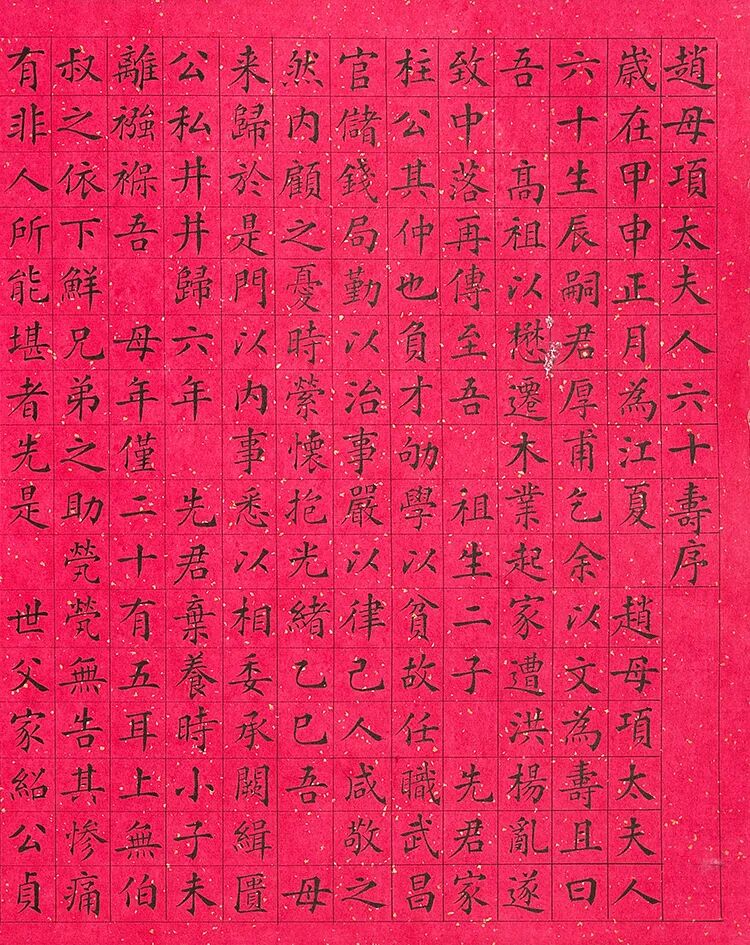 趙母項太夫人六十壽序
歲在甲申正月為江夏趙母項太夫人
六十生辰嗣君厚甫乞余以文為壽且曰
吾高祖以懋遷木業起家遭洪楊亂遂
致中落再傳至吾祖生二子先君家
柱公其仲也負才劬學以貧故任職武昌
官儲錢局勤以治事嚴以律己人咸敬之
然內顧之憂時縈懷抱光緒乙巳吾母
来歸於是門以內事悉以相委承闕緝匱
公私井井歸六年先君棄養時小子未
離襁褓吾母年僅二十有五耳上無伯
叔之依下鮮兄弟之助煢煢無告其慘痛
有非人所能堪者先是世父家紹公貞